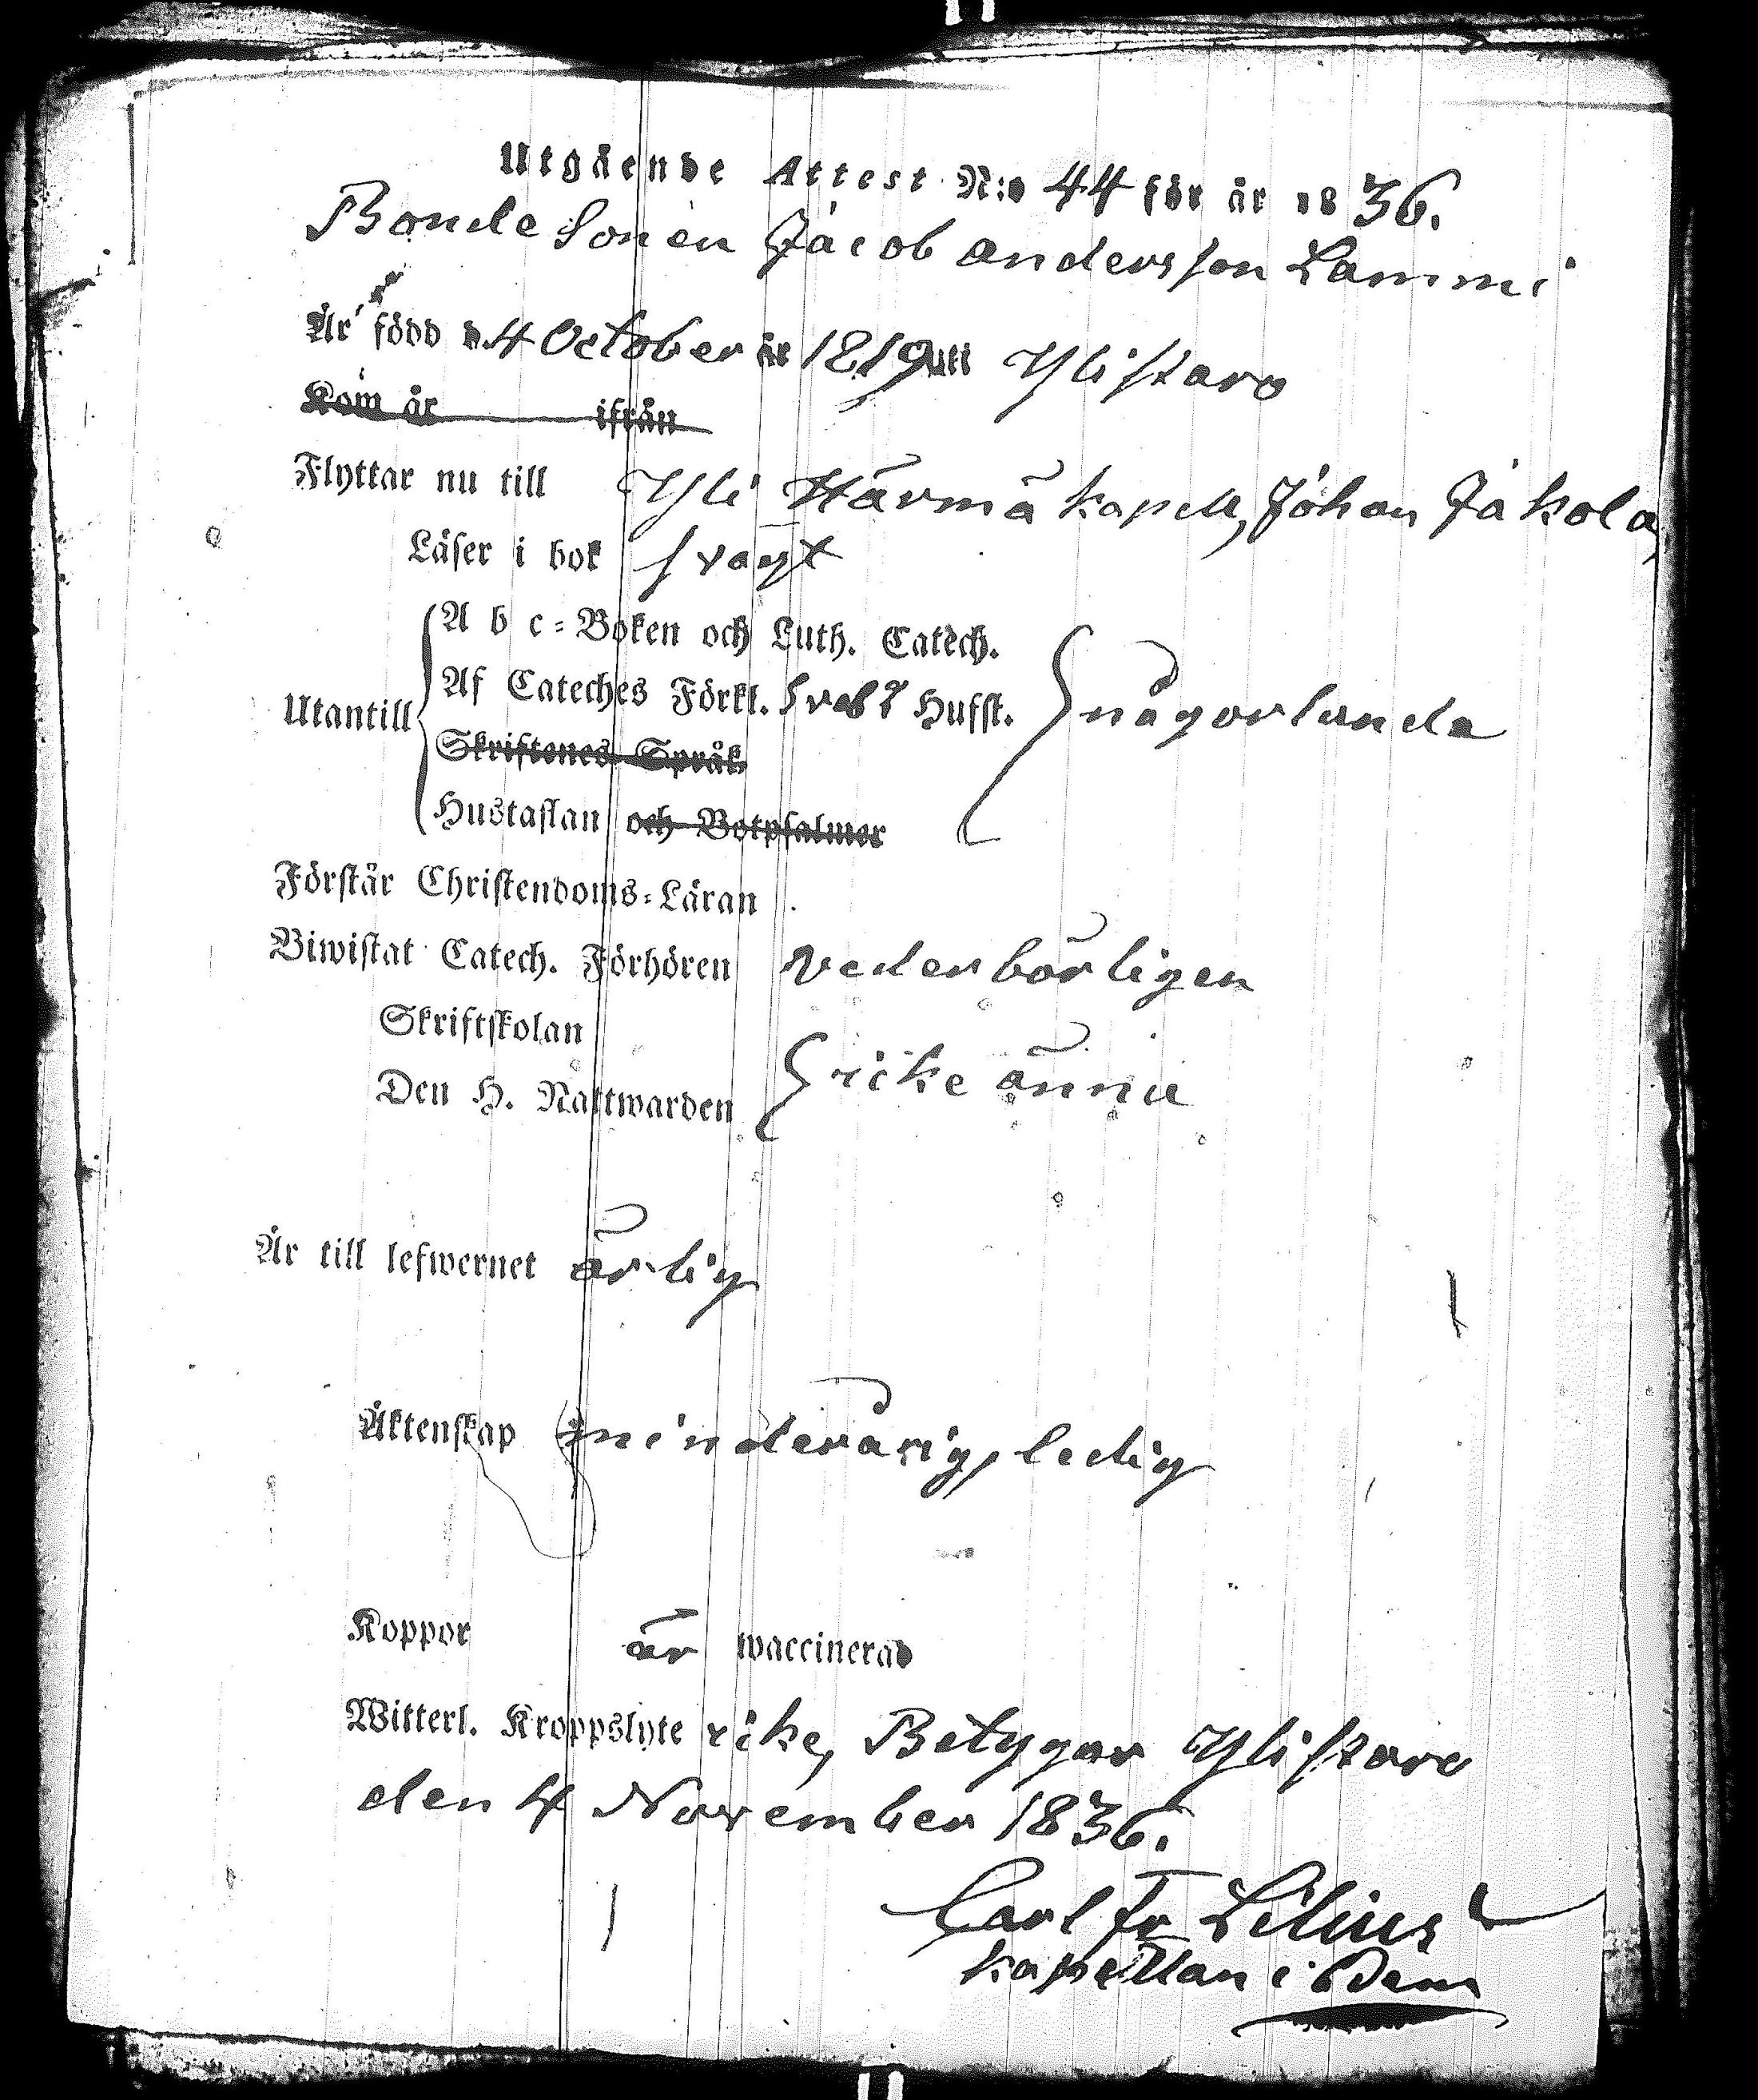 Utgående Attest N:o 44 för år 1836.
Bonde Sonen Jacob Andersson Lammi
Är född d. 4 October år 1819 uti Ylistaro
Kom år ifrån
Flyttar nu till Yli Härmä kapell, Johan Jakola,
Läser i bok svagt
A b c=Boken och Luth. Catech.
Utantill Af Cateches Förkl. Sveb. Hufst. någorlunda
Skriftenes Språk
Hustaflan och Botpsalmer
Förstår Christendoms=Läran
Biwistat Catech. Förhören vederbörligen
Skriftskolan
Den H. Nattwarden icke ännu
Är till lefwernet ärlig
Äktenskap minderårig, ledig
Koppor är waccinerad
Witterl. Kroppslyte icke, Betygar Ylistaro
den 4 November 1836.
Carl Fr Lilius
kapellan i Dem